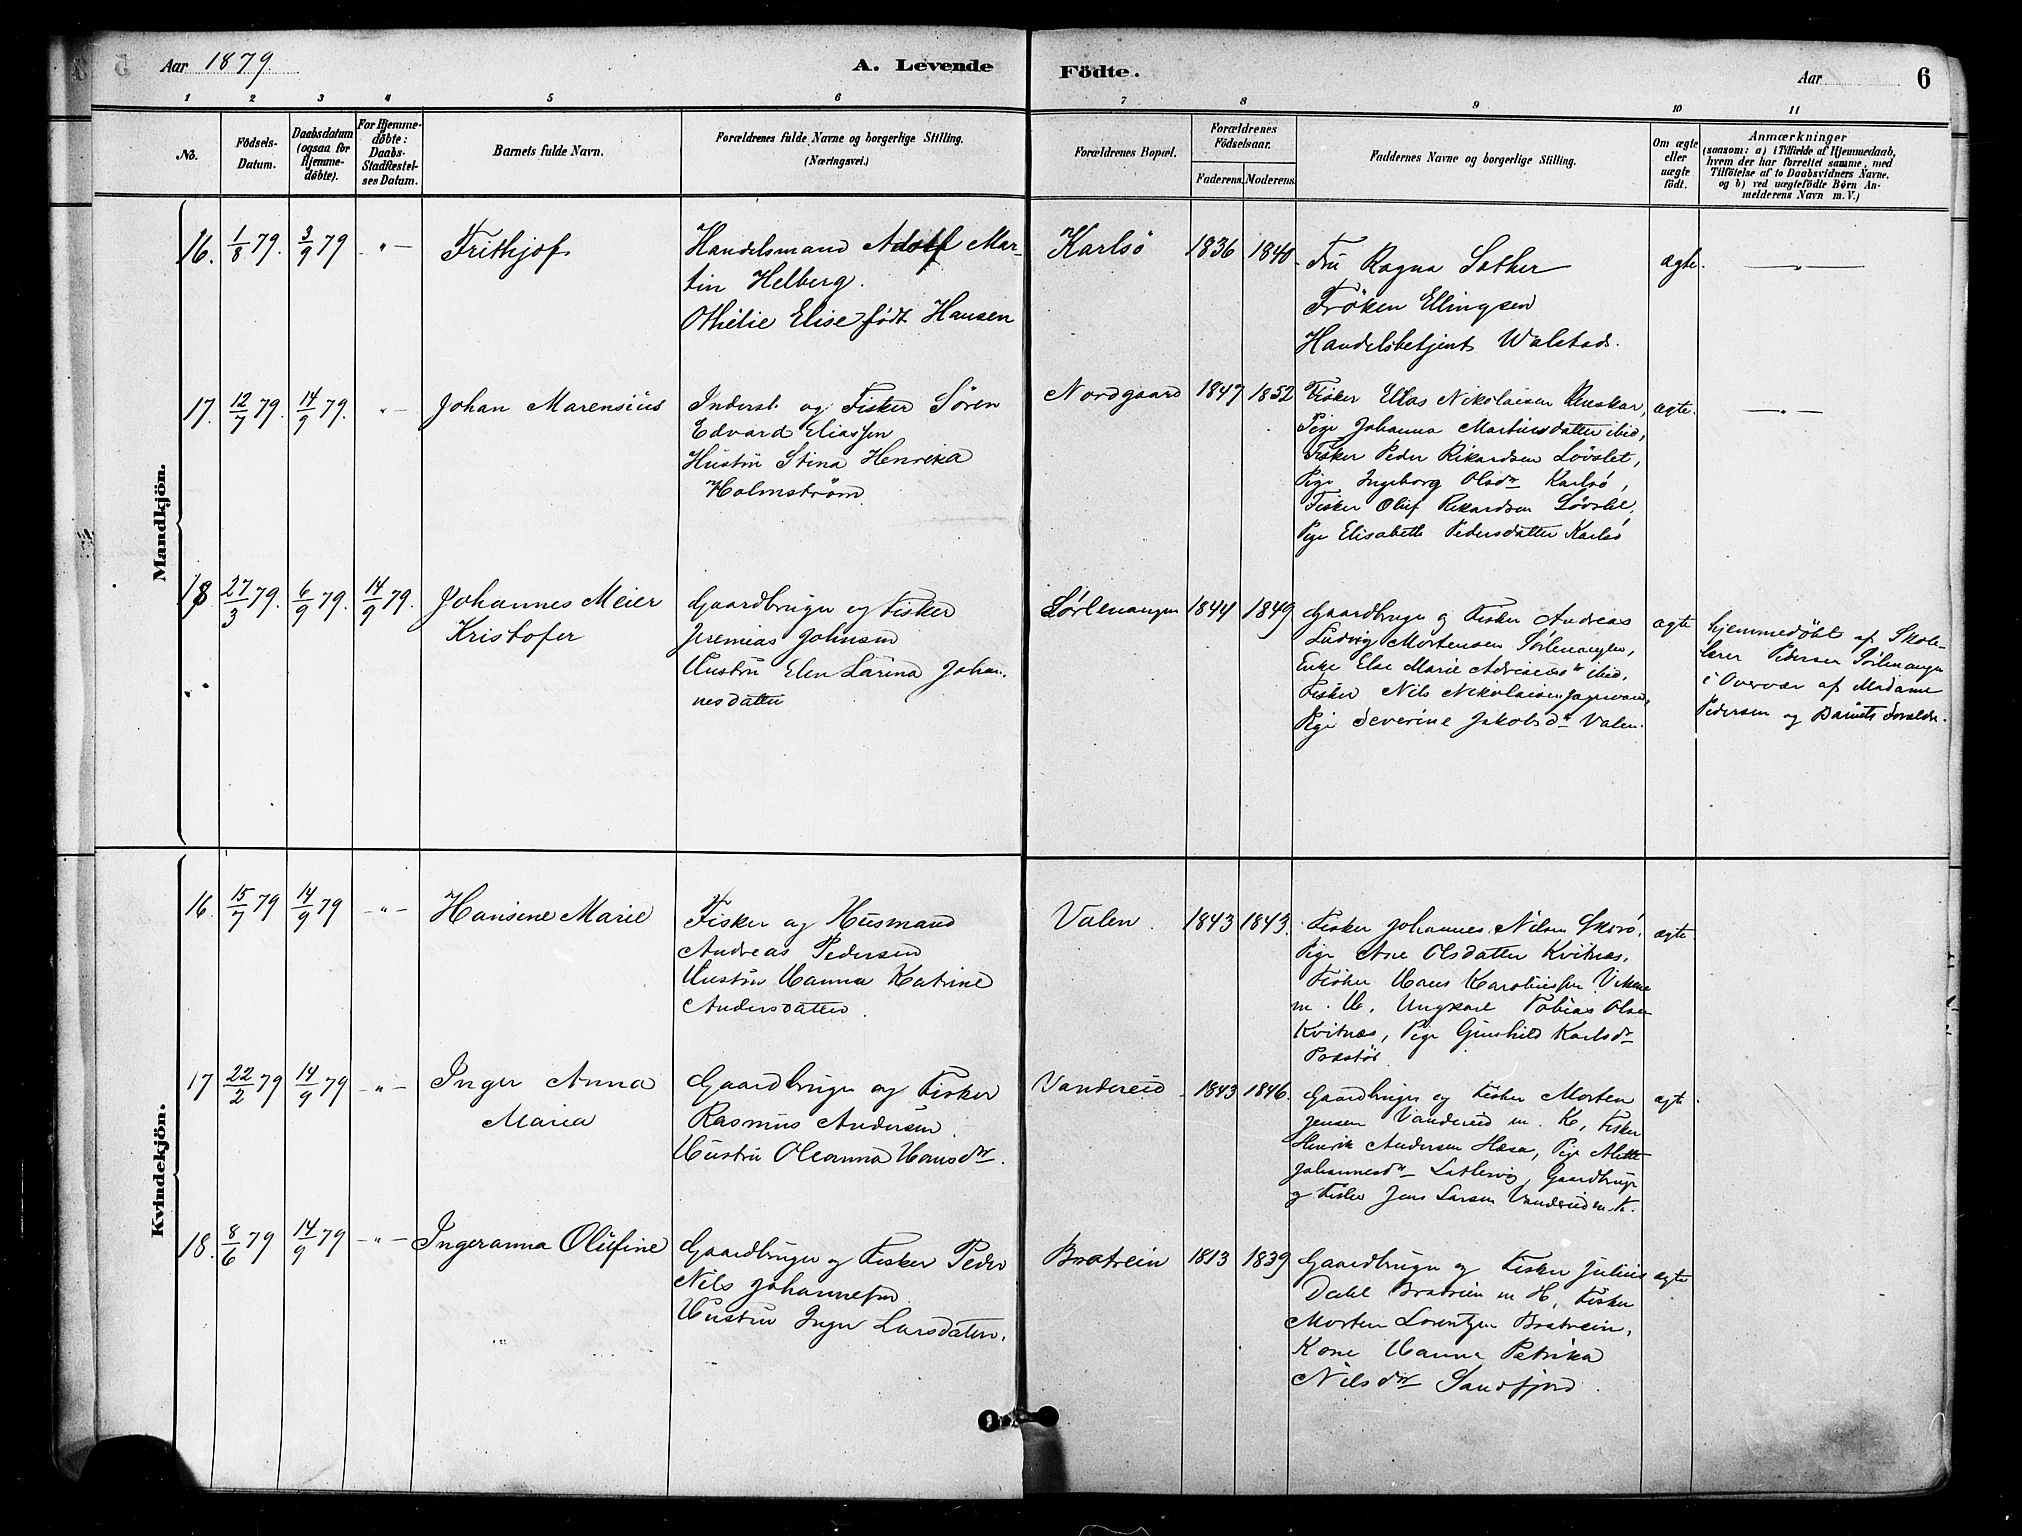 Aar 1879.
A. Levende Födte.
Aar
6
1 2 3 4 5 6 7 8 9 10 11
No.
Födsels-Datum.
Daabsdatum (ogsaa for Hjemmedöbte).
For Hjemmedöbte: Daabs-Stadfæstelses Datum.
Barnets fulde Navn.
Forældrenes fulde Navne og borgerlige Stilling. (Næringsvei.)
Forældrenes Bopæl.
Forældrenes Födselsaar.
Faderens. Moderens.
Faddernes Navne og borgerlige Stilling.
Om ægte eller uægte födt.
Anmærkninger
(saasom: a) i Tilfælde af Hjemmedaab,
hvem der har forrettet samme, med
Tilföielse af to Daabsvidners Navne.
og b) ved uægtefödte Börn An-
melderens Navn m. V.)
Mandkjön.
16. 1/8 79. 3/9 79 -"- Frithjof
Handelsmand Adolf Mar-
tin Helberg.
Othelie Elise født Hansen
Karlsö 1836 1840
Fru Ragna Sather
Fröken Ellingsen
Handelsbetjent Walstad.
ægte. -"-
17. 12/7 79. 14/9 79. -"- Johan Marensius
Inderst. og Fisker Søren
Edvard Eliassen
Hustru Stina Henrika
Holmstrøm.
Nordgaard 1847 1852
Fisker Elias Nikolaisen
Pige Johanna Martinsdatter ibid,
Fisker Peder Rikardsen Løvslet,
Pige Ingeborg Olsdr Karlsö,
Fisker Oluf Rikardsen
Pige Elisabeth Pedersdatter Karlsö
ægte. -"-
18. 27/3 79. 6/9 79. 14/9 79. Johannes Meier
Kristofer
Gaardbruger og Fisker
Jeremias Johnsen
Hustru Elen Larina Johan-
nesdatter
Sørlenangen 1844 1849
Gaardbruger og Fisker Andreas
Ludvig Mortensen Sørlenangen,
Enke Else Marie ibid,
Fisker Nils Nikolaisen
Pige Severine Jakobsdr Valen.
ægte
hjemmedøbt af Skole-
lærer Pedersen Sørlenangen
i Overvær af Madame
Pedersen og Barnets Forældre.
Kvindekjön.
16. 15/7 79 14/9 79 -"- Hansine Marie
Fisker og Husmand
Andreas Pedersen
Hustru Hanna Katrine
Andersdatter.
Valen. 1843 1843.
Fisker Johannes Nilsen
Pige Ane Olsdatter Kvitnæs,
Fisker Hans
m. H. Ungkarl Tobias Olsen
Kvitnæs, Pige Gunhild Karlsdr
ægte.
17 22/2 79 14/9 79 -"- Inger Anna
Maria
Gaardbruger og Fisker
Rasmus Andersen.
Hustru Oleanna Hansdr.
Vandereid. 1843 1846.
Gaardbruger og Fisker Morten
Jensen Vandereid m. K, Fisker
Henrik Andersen Pige Alette
Johannesdr Gaardbruger
og Fisker Jens Larsen Vandereid m. K.
ægte
18. 8/6 79 14/9 79 -"- Ingeranna Olufine
Gaardbruger og Fisker Peder
Nils Johannesen
Hustru Inger Larsdatter.
Bratrein 1813 1839
Gaardbruger og Fisker Julius
Dahl Bratrein m H, Fisker
Morten Lorentzen Bratrein,
Kone Hanna Petrika
Nilsdr Sandfjord.
ægte